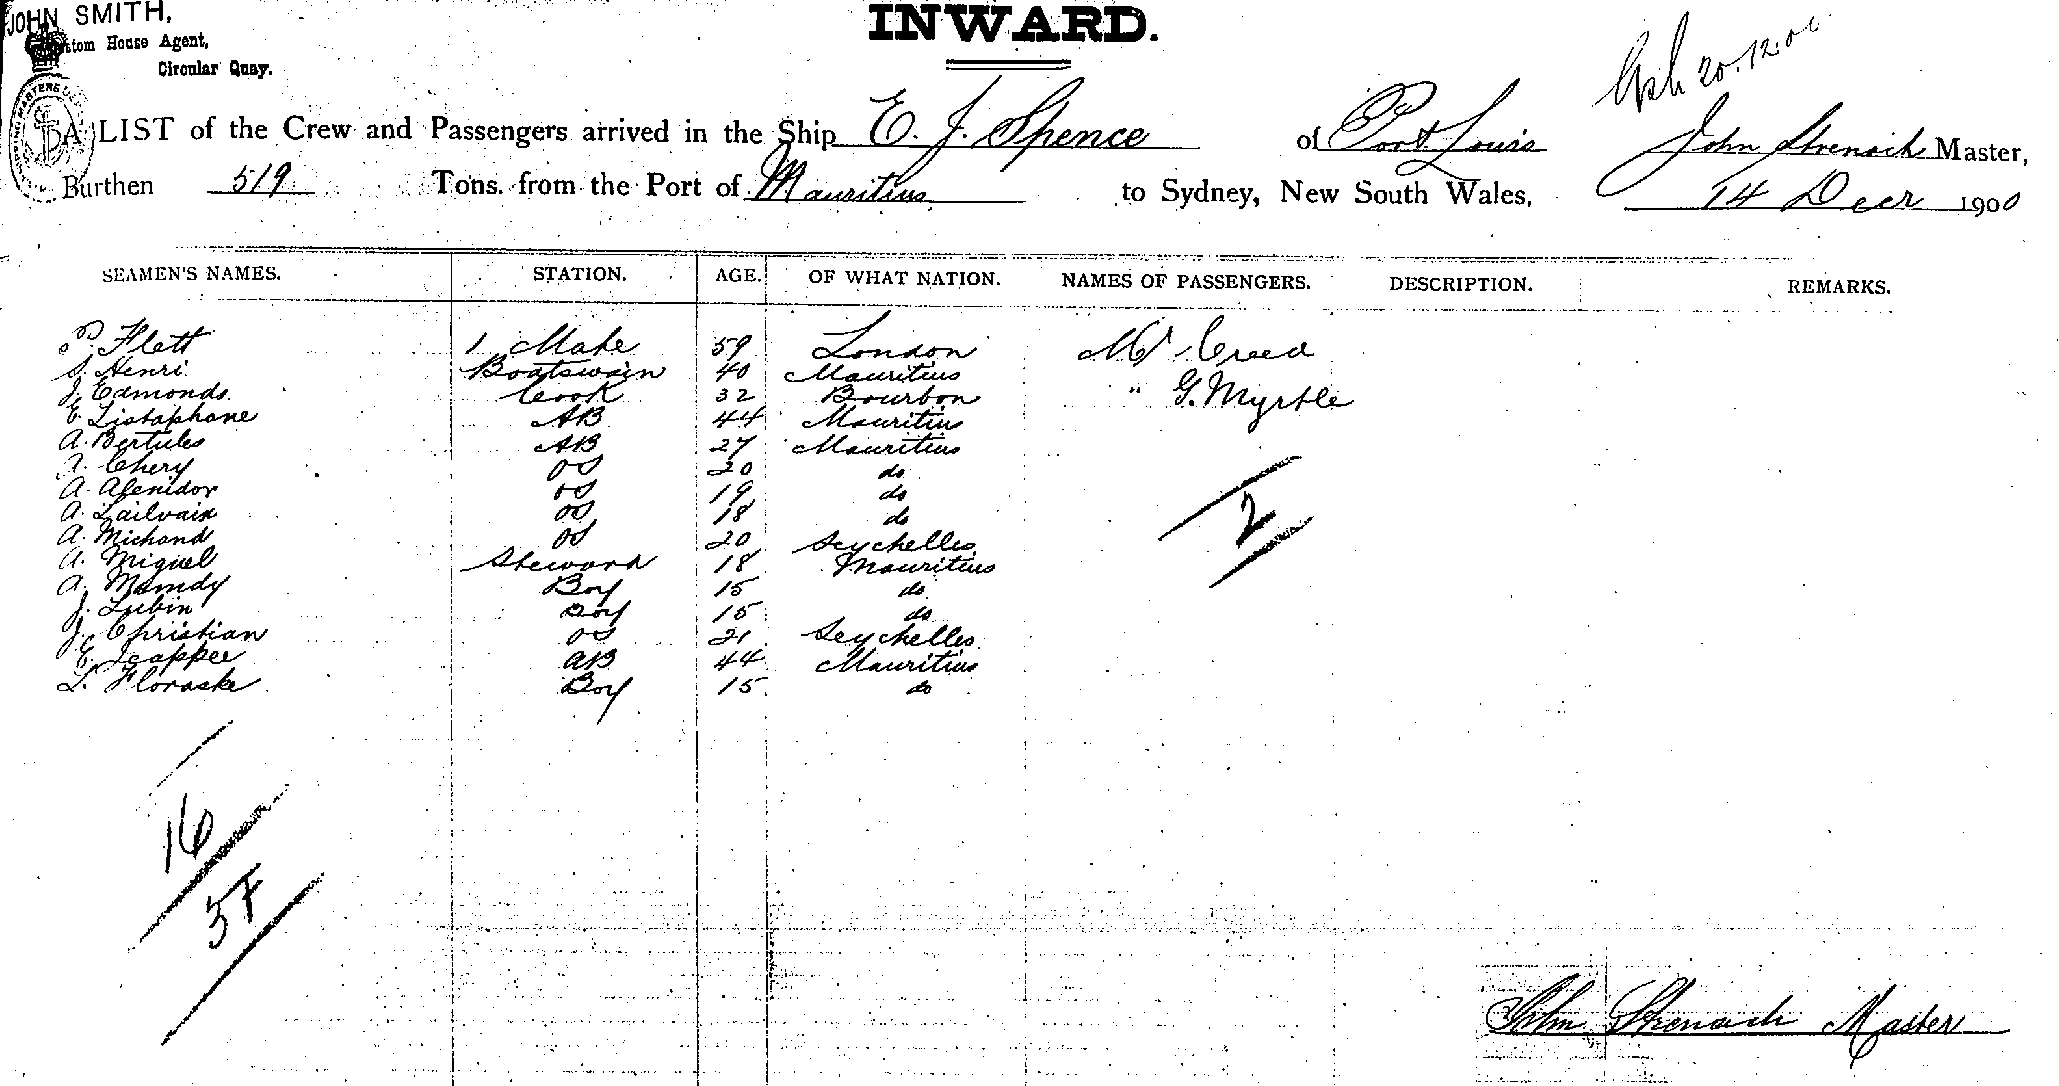 JOHN SMITH,
Custom House Agent,
Circular Quay.
INWARD.
20.12.00
A LIST of the Crew and Passengers arrived in the Ship E. J. Spence of Port Louis John Strenach Master,
Burthen 519 Tons from the Port of Mauritius to Sydney, New South Wales, 14 Decr 1900
SEAMEN'S NAMES. STATION. AGE. OF WHAT NATION. NAMES OF PASSENGERS. DESCRIPTION. REMARKS.
P. Flett 1 Mate 59 London Mr Creed
S. Henri Boatswain 40 Mauritius
J. Edmonds Cook 32 Bourbon " G. Myrtle
E. Listaphane AB 44 Mauritius
A. Bertules AB 27 Mauritius
A. Chery OS 20 do
A. Afenidor OS 19 do
A. Lailvaix OS 18 do
A. Michaud OS 20 Seychelles
A. Miguel Steward 18 Mauritius
A. Mamdy Boy 15 do
J. Lubin Boy 15 do
J. Christian OS 21 Seychelles
E. Jcappee AB 44 Mauritius
L. Floraske Boy 15 do
2
16
5F
John Strenach Master